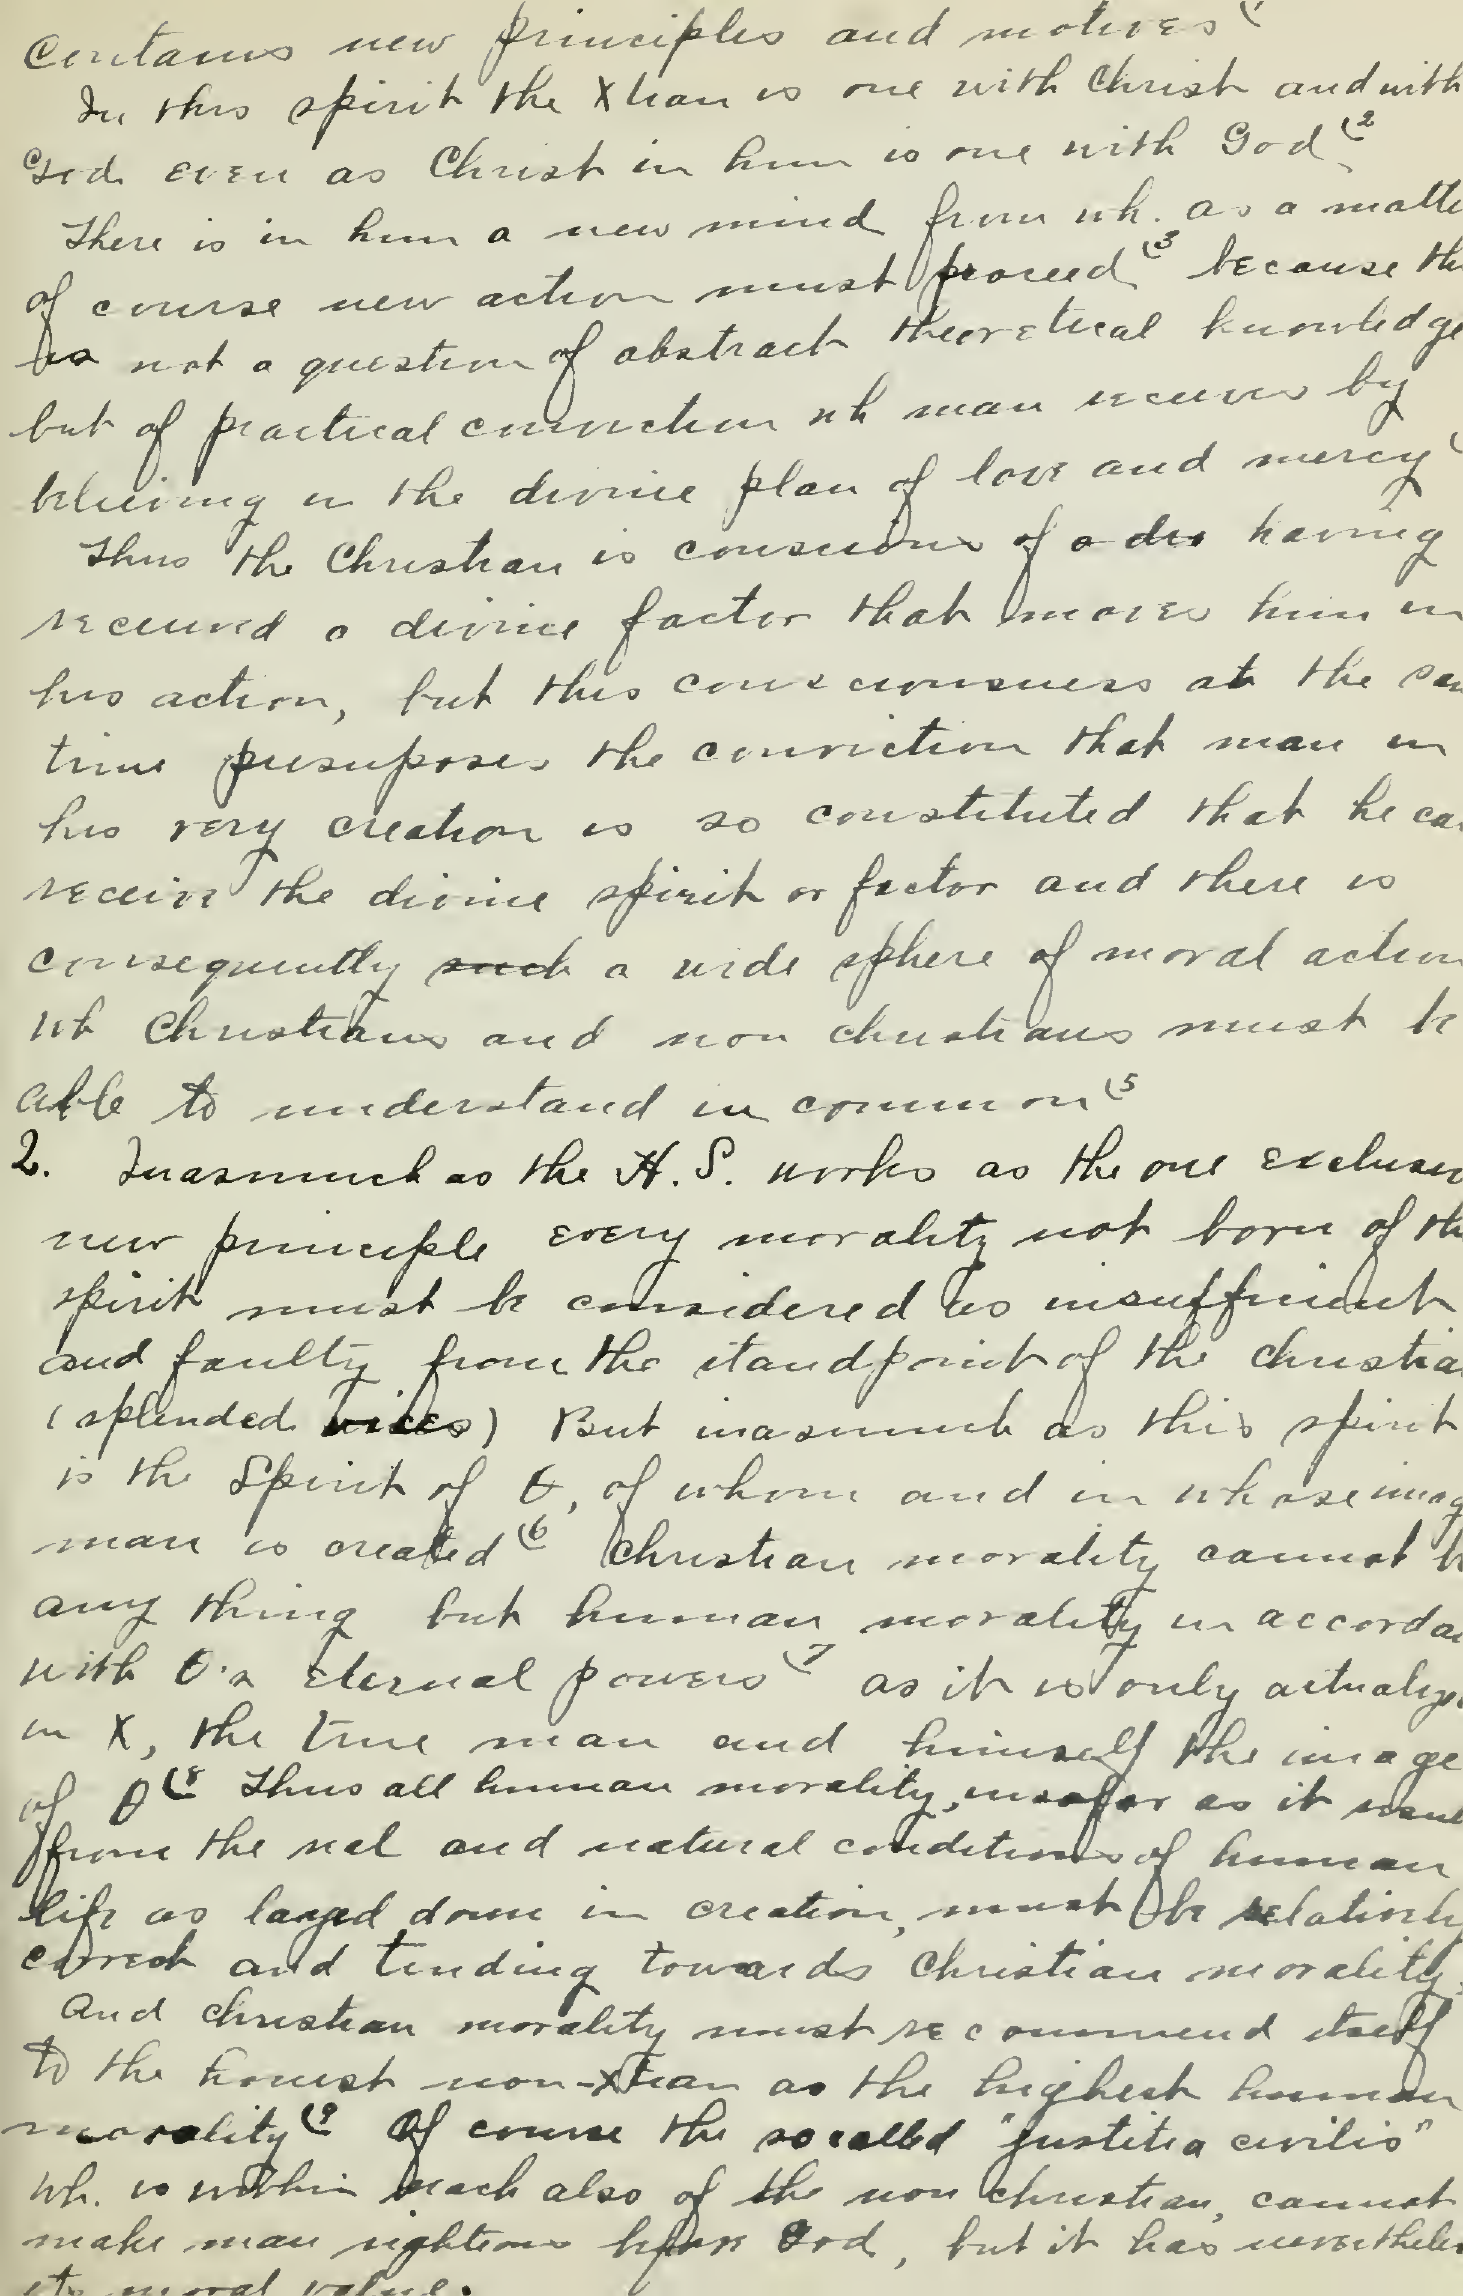 Contains new principles and motives (1
In this spirit the Xtian is one with Christ and with
God even as Christ in him is one with God (2
There is in him a new mind from wh. as a matte
of course new action must proceed (3 because th
is not a question of abstract theoretical knowledge
but of practical conviction wh man receives by
believing in the divine plan of love and mercy (
Thus the Christian is conscious of a div having
received a divine factor that moves him in
his action, but this consciousness at the sam
time presuposes the conviction that man in
his very creation is so constituted that he ca
receive the divine spirit or factor and there is
consequently such a wide sphere of moral action
wh Christians and non christians must be
able to understand in common (5
2. Inasmuch as the H. S. works as the one exclusiv
new principle every morality not born of th
spirit must be considered as insufficient
and faulty from the standpoint of the christia
(splended vices) But inasmuch as this spirit
is the Spirit of θ, of whom and in whose imag
man is created (6 Christian morality cannot b
any thing but human morality in accordan
with θ's eternal powers (7 as it is only actualize
in X, the true man and himself the image
of θ (8 Thus all human morality, insofar as it
from the real and natural conditions of human
life as layed down in creation, must be relatively
correct and tending towards Christian morality.
And christian morality must recommend itself
to the honest non-Xtian as the highest human
morality (9 Of course the so called "justitia civilis"
wh. is within reach also of the non christian, cannot
make man righteous before God, but it has nevertheles
its moral value.